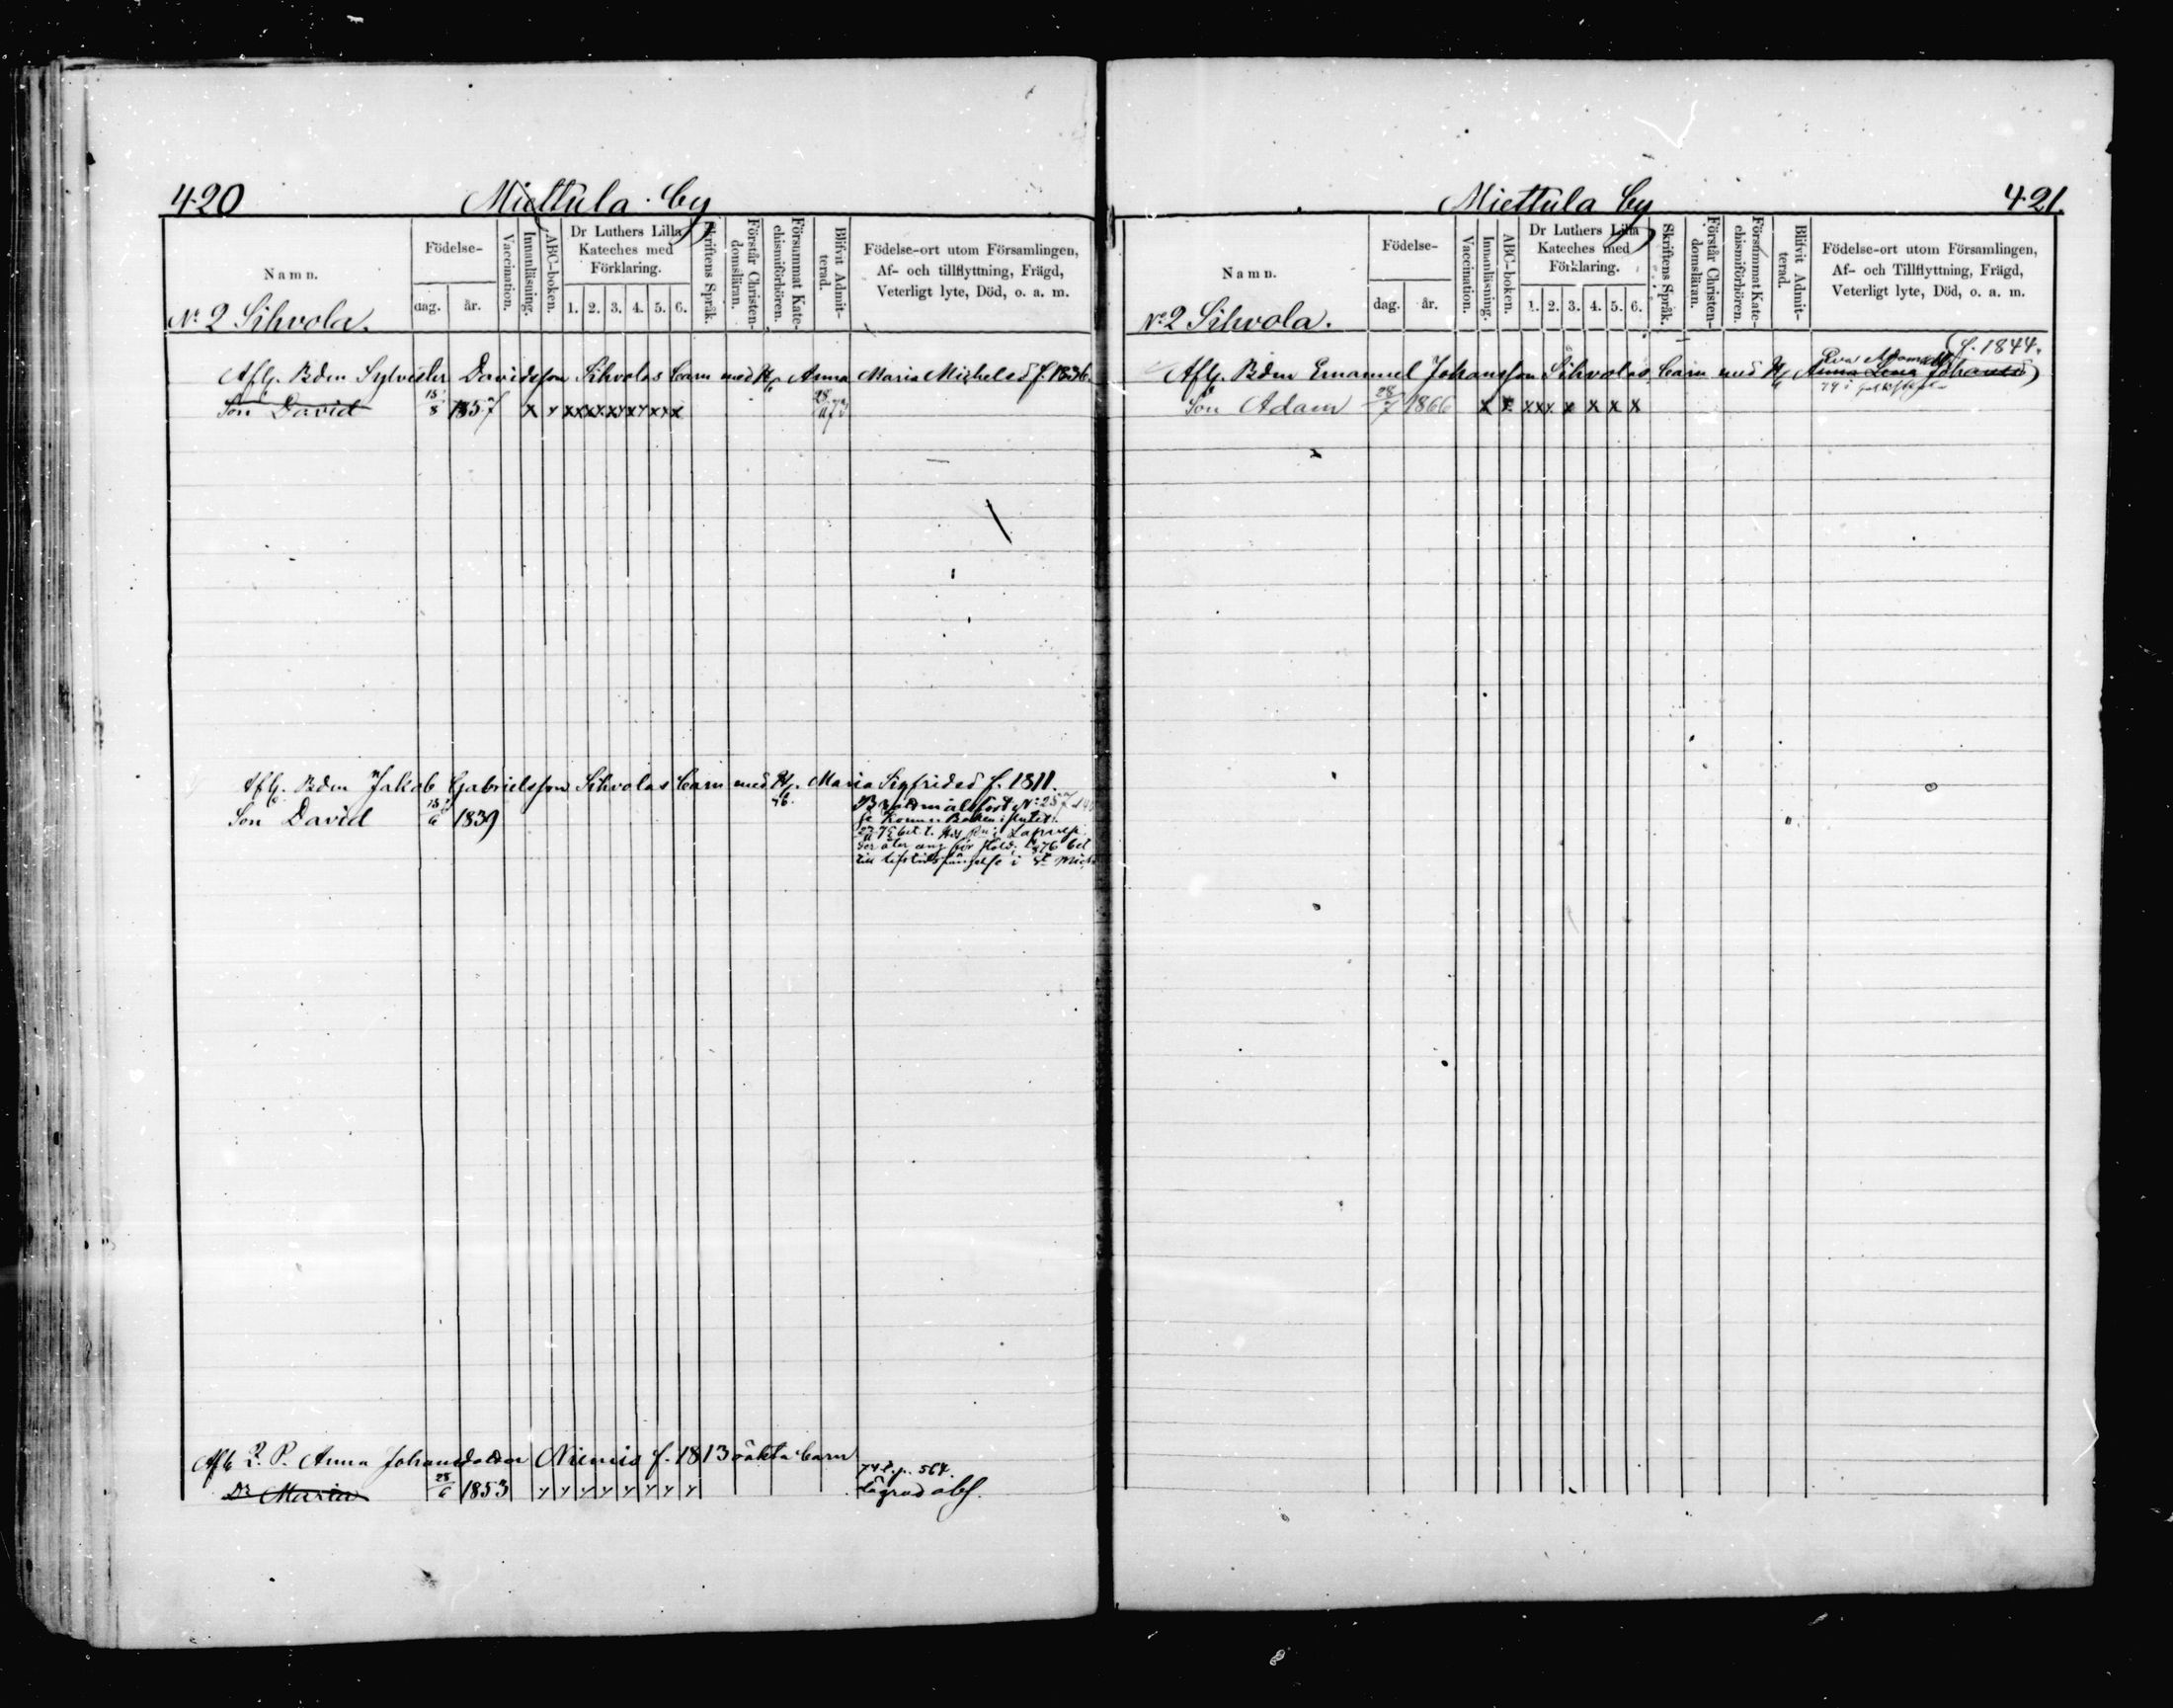 420 Miettula by
Namn.
Födelse-
dag. år.
Vaccination.
Innanläsning.
ABC-boken.
Dr Luthers Lilla
Kateches med
Förklaring.
1. 2. 3. 4. 5. 6.
Skriftens Språk.
Förstår Christen-
domsläran.
Försummat Kate-
chismiförhören.
Blifvit Admit-
terad.
Födelse-ort utom Församlingen,
Af- och tillflyttning, Frägd,
Veterligt lyte, Död, o. a. m.
No 2 Sihvola.
Afl. Bden Sylvester Davidsson Sihvolas barn med H. Anna Maria Michelsd f. 1836.
Son David 15/8 1857 x x xx xx xx xx xx x 73
Afl. Bden Jakob Gabrielsson Sihvolas barn med H. Maria Sigfridsd f. 1811.
Son David 6 1839
Afl. Anna Johansdotter Niemis f. 1813 oäkta barn
Dr Maria 25/6 1853 74 p. 564.
Miettula by 421.
Namn.
Födelse-
dag. år.
Vaccination.
Innanläsning.
ABC-boken.
Dr Luthers Lilla
Kateches med
Förklaring.
1. 2. 3. 4. 5. 6.
Skriftens Språk.
Förstår Christen-
domsläran.
Försummat Kate-
chismiförhören.
Blifvit Admit-
terad.
Födelse-ort utom Församlingen,
Af- och Tillflyttning, Frägd,
Veterligt lyte, Död, o. a. m.
No 2 Sihvola.
Eva Adamsd f. 1844.
Afl. Bden Emanuel Johansson Sihvolas barn med H. Anna Lena Johansd
Son Adam 28/7 1866 x x xxx x x x x